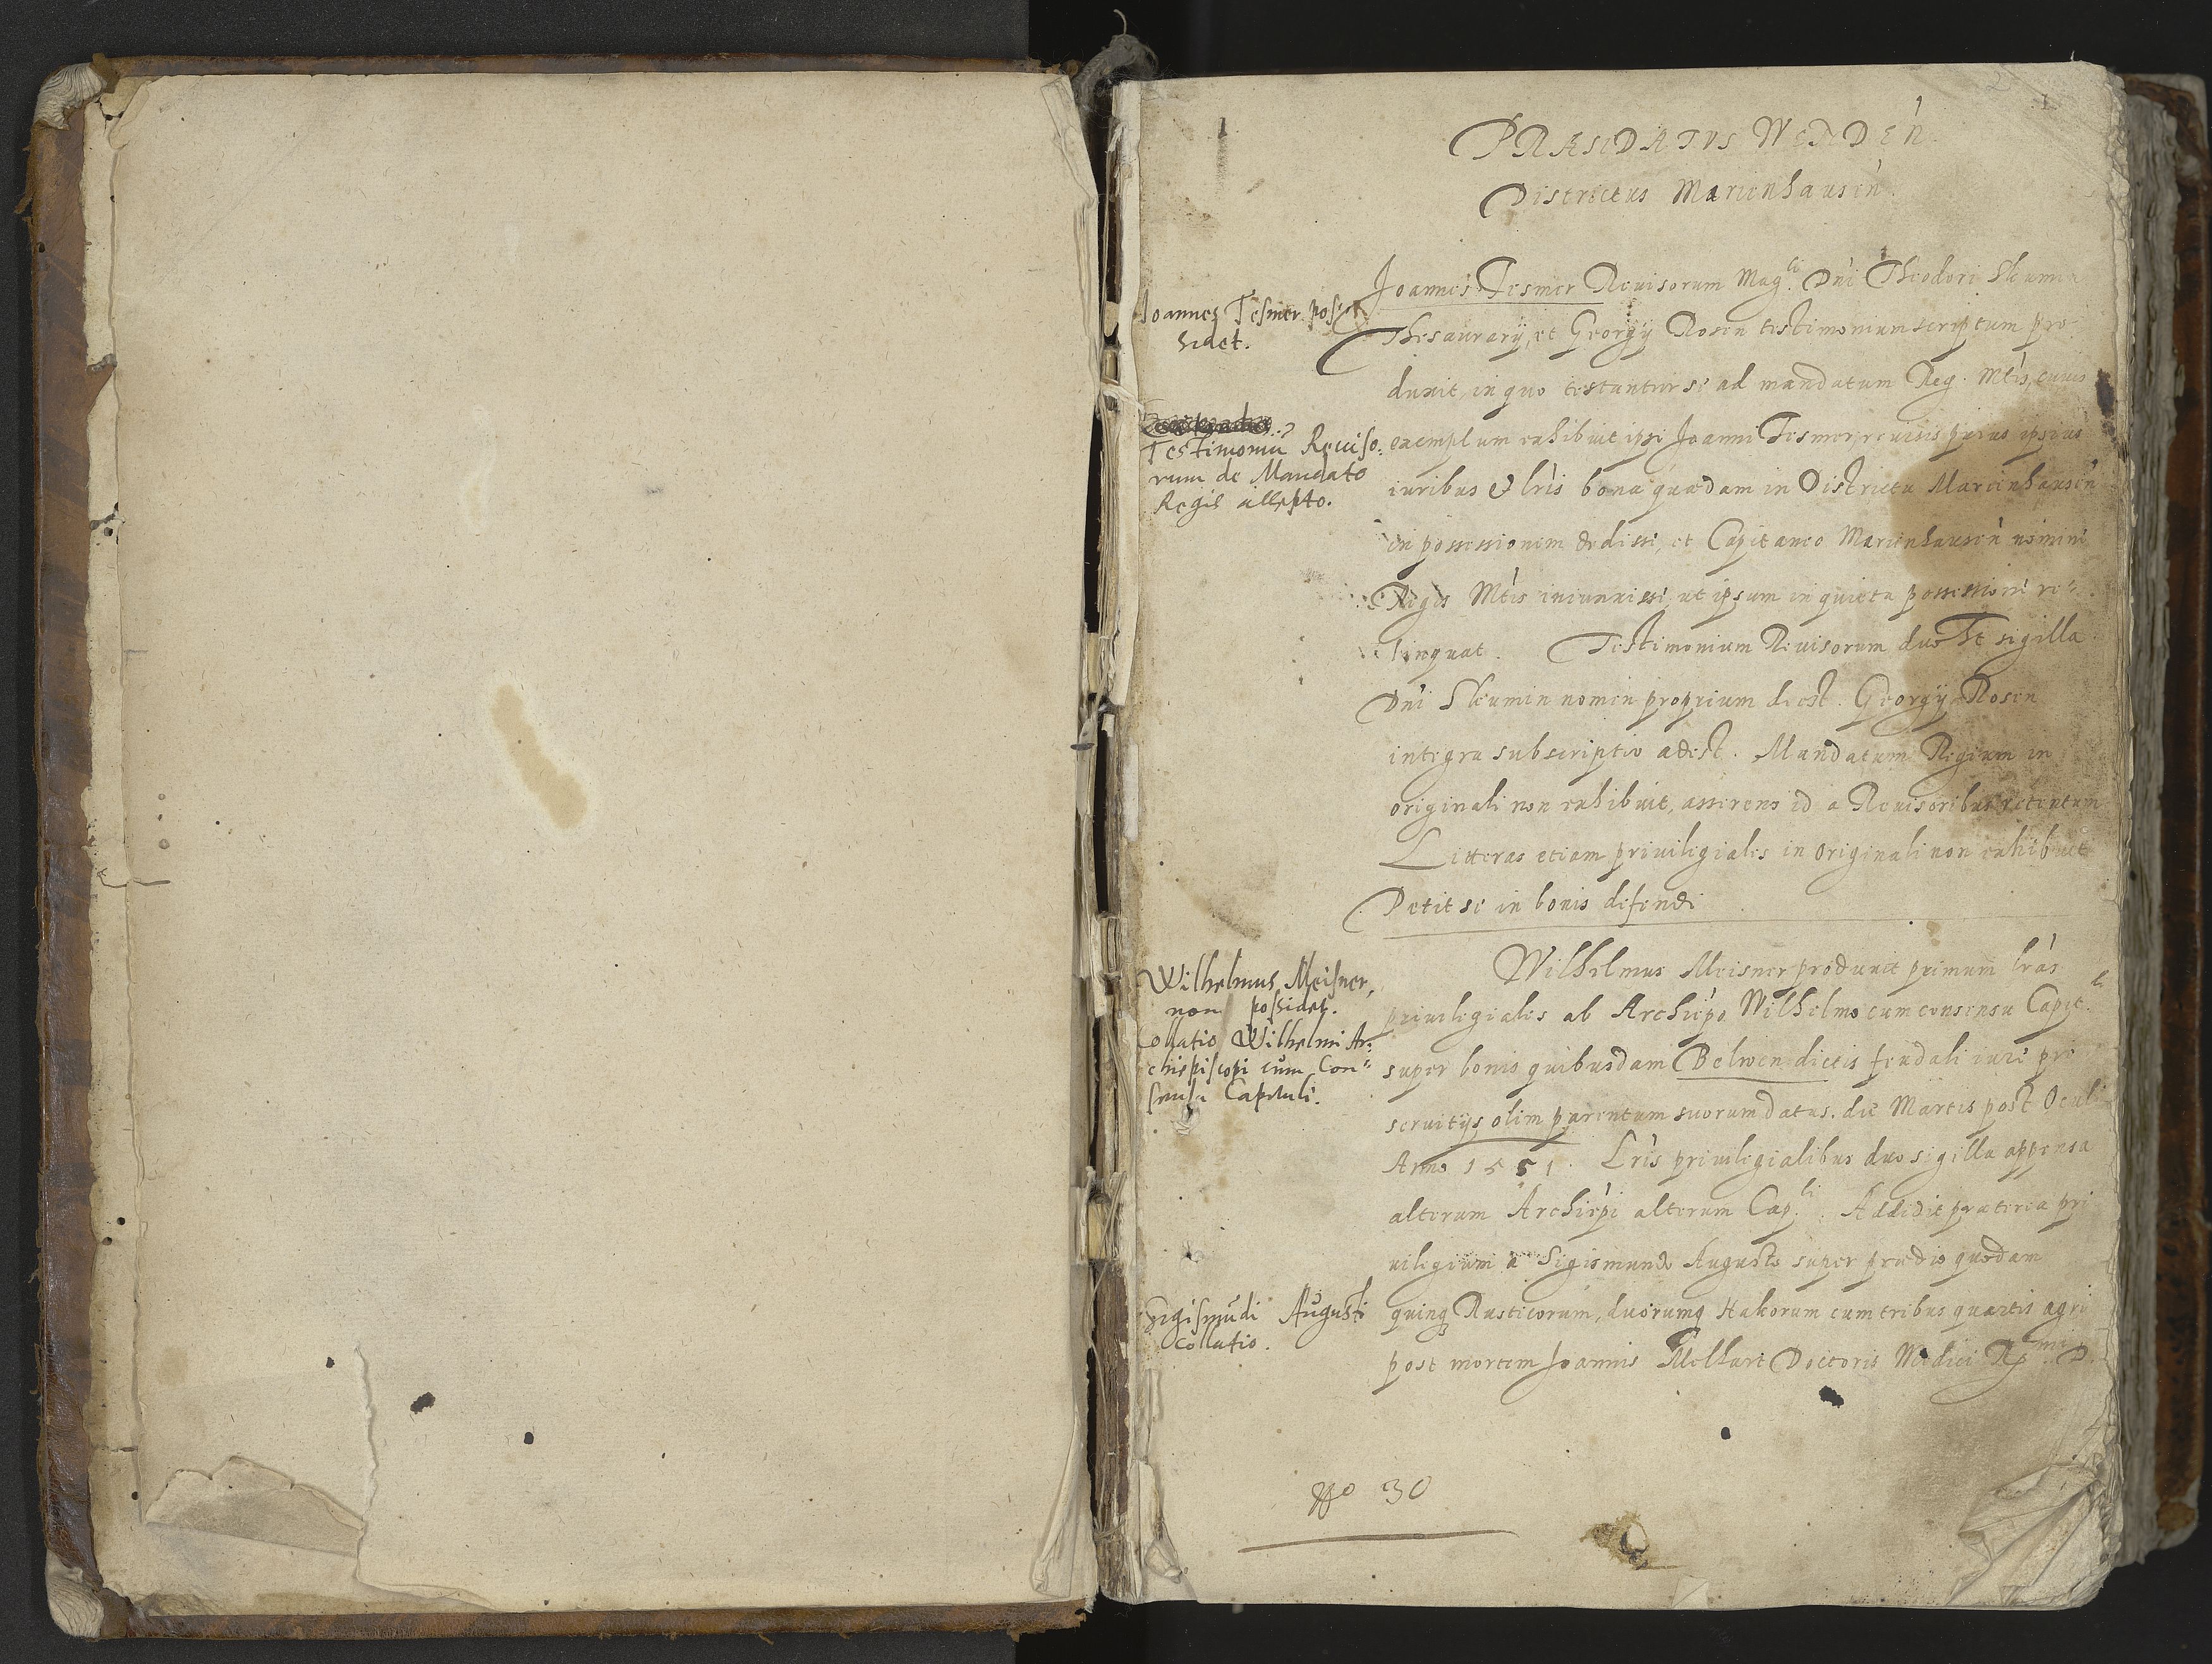 1
1
PRÆSIDATVS WENDEN.
Districtus Marienhausen.
Joannes Tesmer possidet.
Joannes Tesmer Reuisorum Mag.ci Dni Theodori Skumin
Thesaurarij, et Georgij Rosen testimonium scriptum pro-
duxit, in quo testantur se ad mandatum Reg. Mtis, cuius
Testimoniũ Reuiso:
rum de Mandato
Regis
exemplum exhibuit ipsi Joanni Tesmer, reuisis prius ipsius
iuribus & lris bona quædam in Districtu Marienhausen
in possessionem dedisse, et Capitaneo Marienhausen nomine
Regis Mtis iniunxisse, ut ipsum in quieta possessione re-
linquat. Testimonium Reuisorum duo ht sigilla
Dni Skumin nomen proprium deest. Georgij Rosen
integra subscriptio adest. Mandatum Regium in
originali non exhibuit, asserens id a Reuisoribus retentum
Litteras etiam priuilegiales in originali non exhibuit
Petit se in bonis defendi
Wilhelmus Meisner,
non possidet.
Collatio Wilhelmi Ar:
chiepiscopi cum Con=
sensu Capituli.
Wilhelmus Meisner produxit primum lras
priuilegiales ab Archiepo Wilhelmo cum consensu Capit.li
super bonis quibusdam Belwen dictis feudali iure pro
seruitijs olim parentum suorum datas. die Martis post Oculi
Anno 1551. Lris priuilegialibus duo sigilla appensa
alterum Archiepi alterum Cap.li. Addidit præterea pri
uilegium a Sigismundo Augusto super prædio quodam
Sigismũdi Augusti
collatio.
quinq Rusticorum, duorumq Hakorum cum tribus quartis agri
post mortem Joannis Melhart Doctoris Medici R.mi D.
No 30